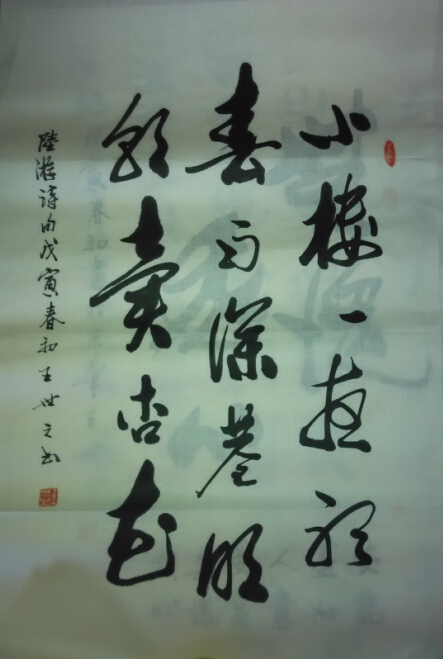 小樓一夜聽
春雨深巷明
朝賣杏花
陸游詩句戊寅春初王世之書